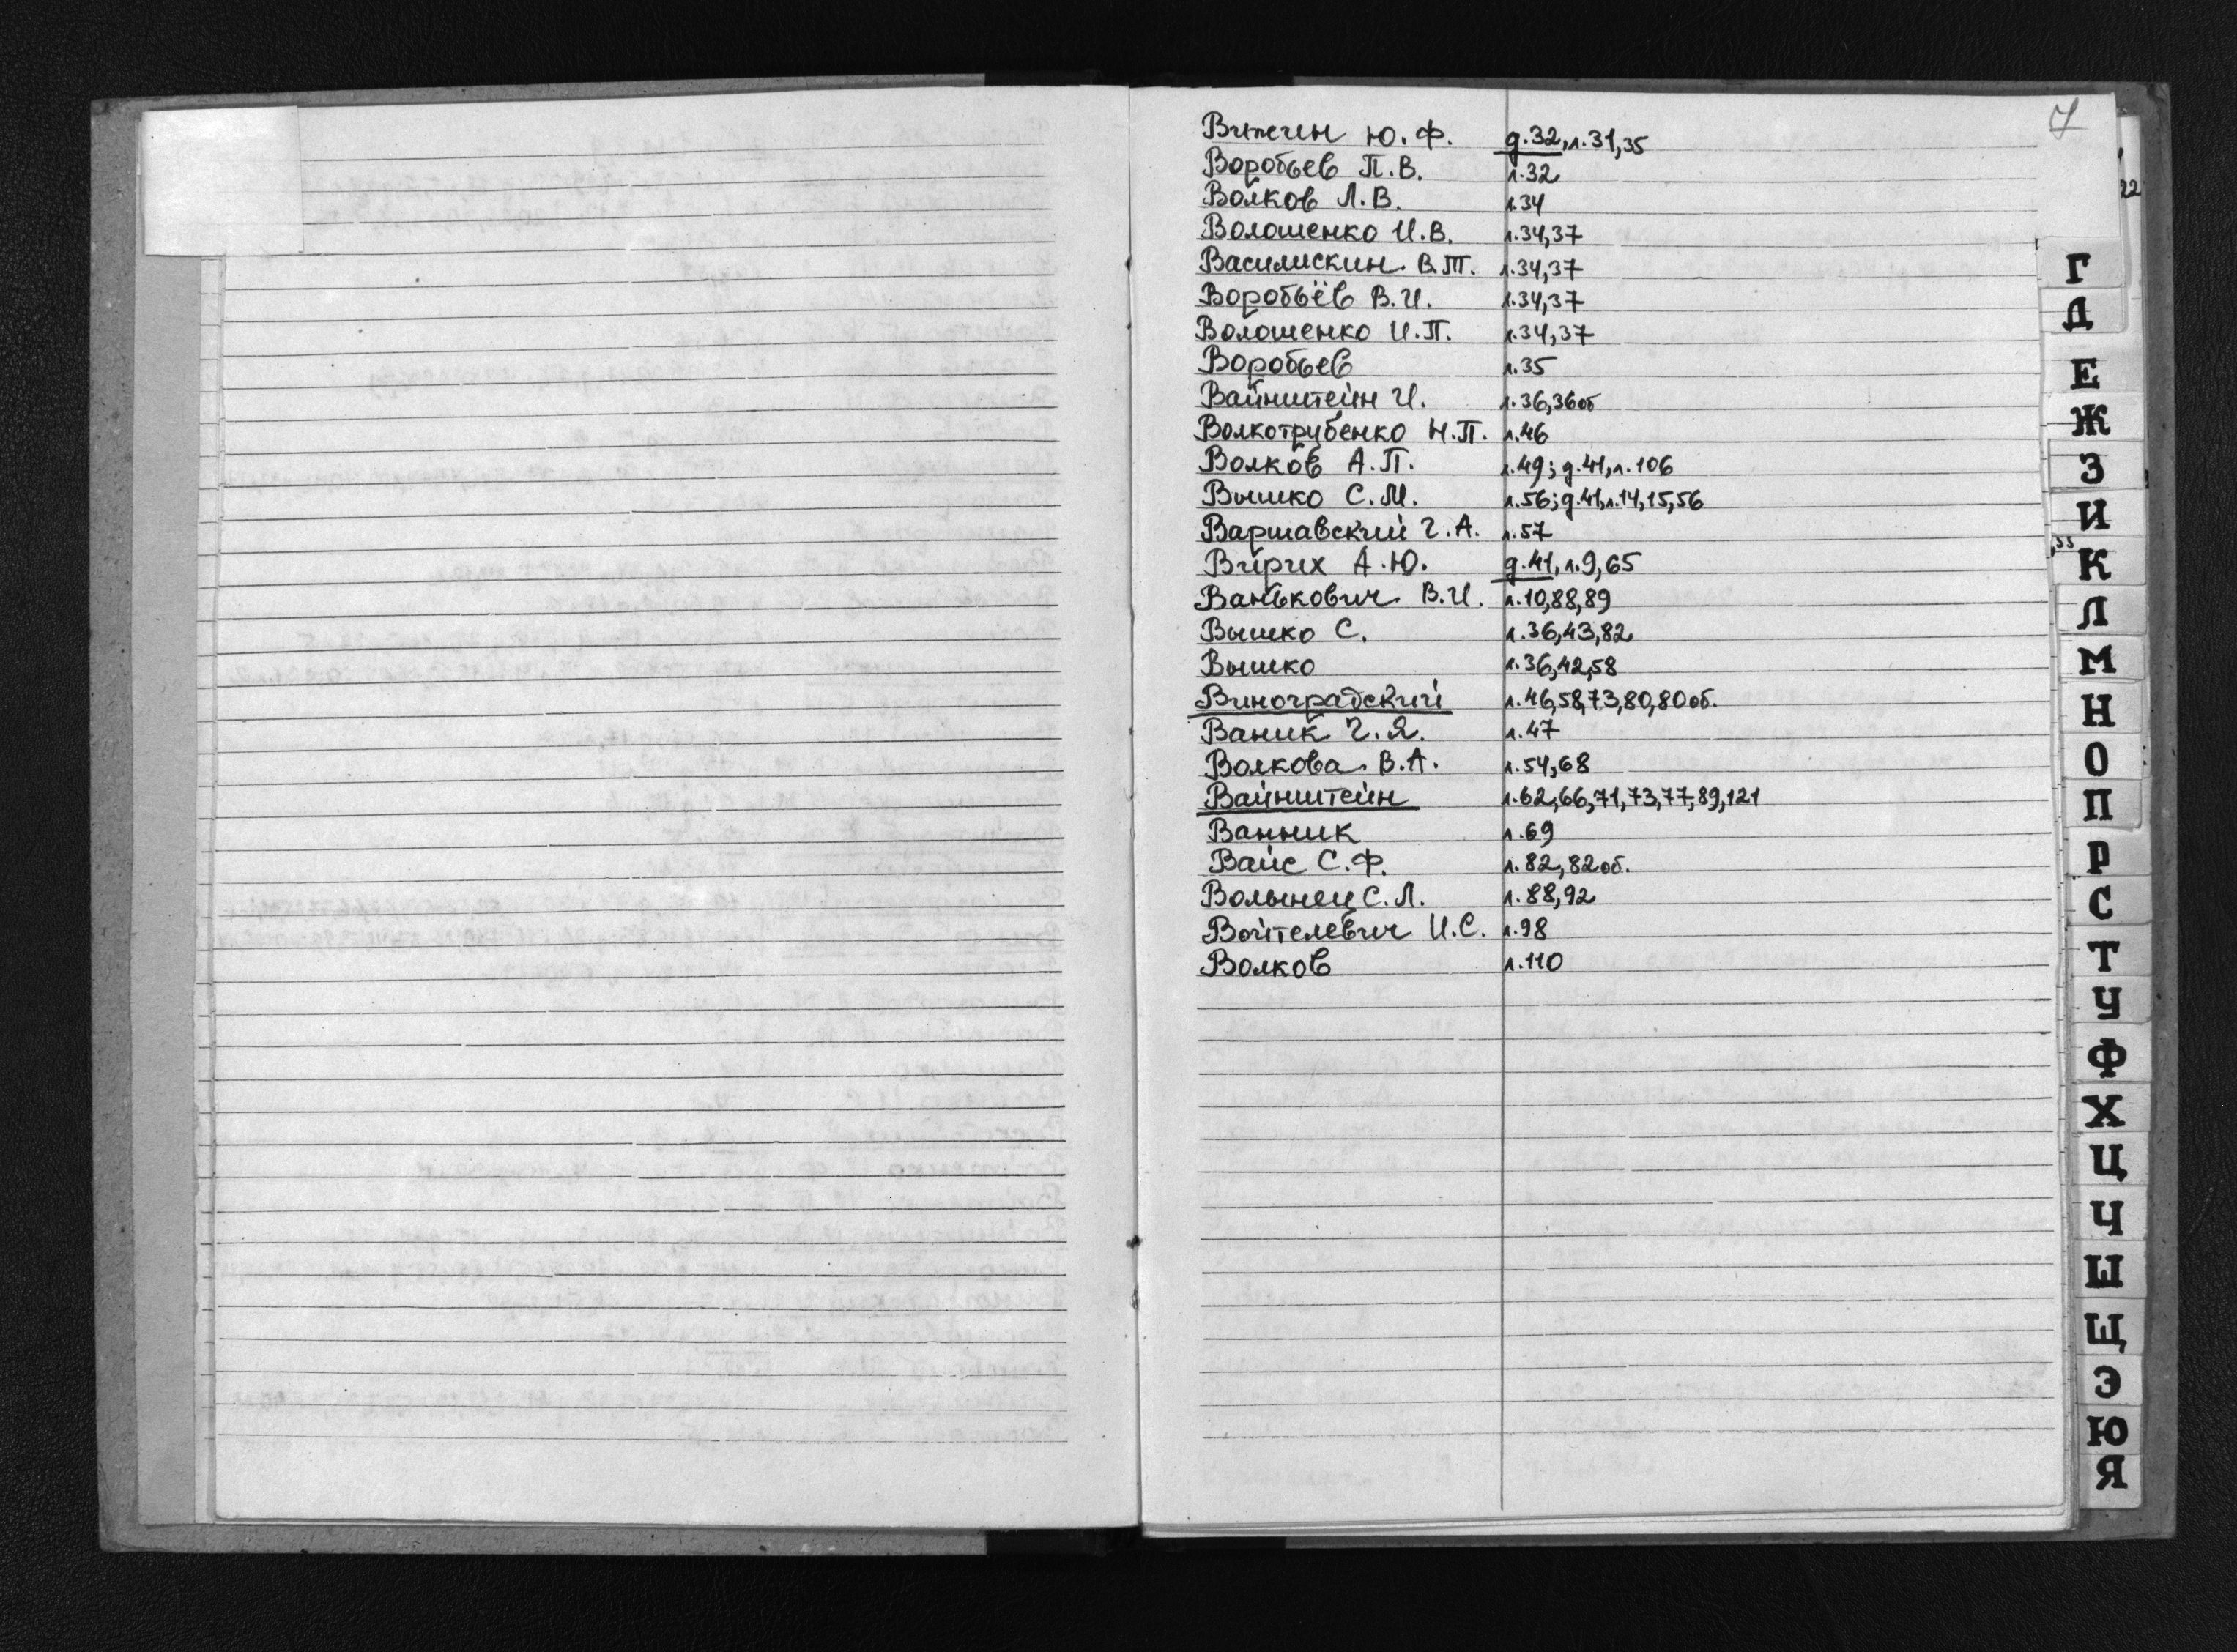 7
Витгин Ю.Ф. д.32, л.31,35
Воробьев П.В. л.32
Волков Л.В. л.34
Волошенко И.В. л.34,37
Василискин В.Т. л.34,37
Воробьёв В.И. л.34,37
Волошенко И.П. л.34,37
Воробьев л.35
Вайнштейн И. л.36,36об
Волкотрубенко Н.П. л.46
Волков А.П. л.49; д.41, л.106
Вышко С.М. л.56; д.41, л.14,15,56
Варшавский Г.А. л.57
Вирих А.Ю. д.41, л.9,65
Ванькович В.И. л.10,88,89
Вышко С. л.36,43,82
Вышко л.36,42,58
Виноградский л.46,58,73,80,80об.
Ваник Г.Я. л.47
Волкова В.А. л.54,68
Вайнштейн л.62,66,71,73,77,89,121
Ванник л.69
Вайс С.Ф. л.82,82об.
Волынец С.Л. л.88,92
Войтелевич И.С. л.98
Волков л.110
22
Г
Д
Е
Ж
З
И
К
Л
М
Н
О
П
Р
С
Т
У
Ф
Х
Ц
Ч
Ш
Щ
Э
Ю
Я